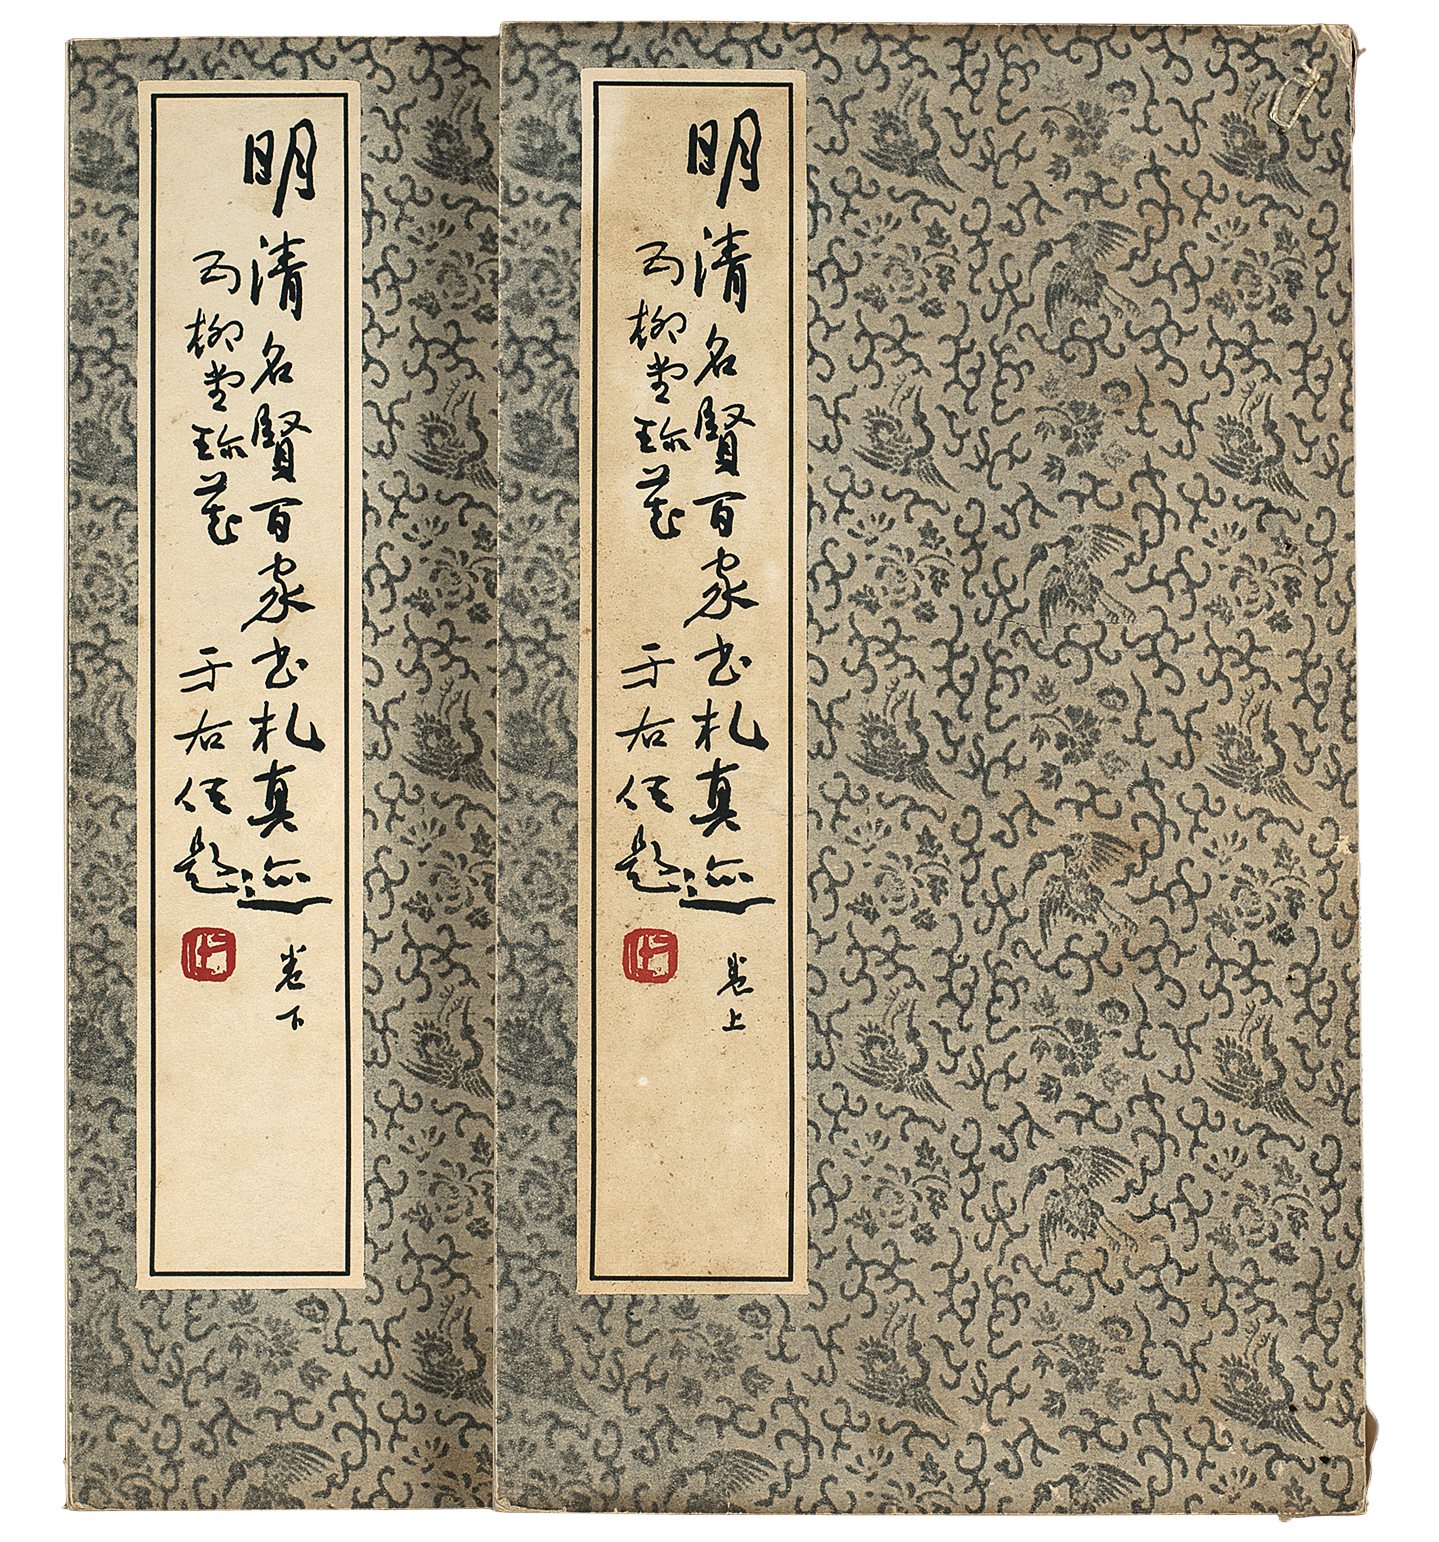 明清名賢百家書札真迹 卷上
五柳堂珍藏 于右任題
明清名賢百家書札真迹 卷下
五柳堂珍藏 于右任題